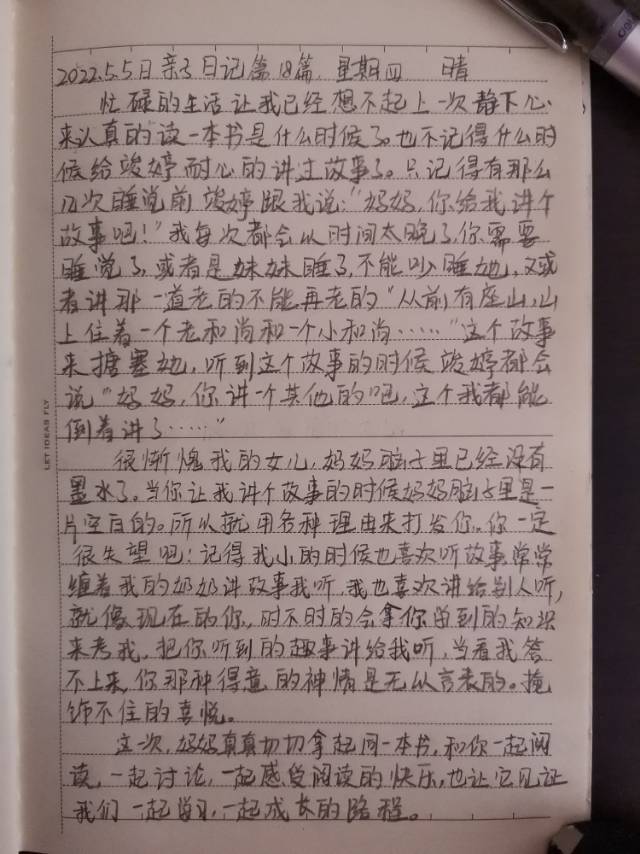 2022.5.5日 亲子日记第18篇 星期四 晴
忙碌的生活让我已经想不起上一次静下心
来认真的读一本书是什么时候了。也不记得什么时
候给竣婷耐心的讲过故事了。只记得有那么
几次睡觉前竣婷跟我说:“妈妈,你给我讲个
故事吧!”我每次都会以时间太晚了,你需要
睡觉了,或者是妹妹睡了,不能吵醒她,又或
者讲那一道老的不能再老的“从前有座山,山
上住着一个老和尚和一个小和尚……”这个故事
来搪塞她,听到这个故事的时候竣婷都会
说“妈妈,你讲一个其他的吧,这个我都能
倒着讲了……”
LET IDEAS FLY
很惭愧我的女儿,妈妈脑子里已经没有
墨水了。当你让我讲个故事的时候妈妈脑子里是一
片空白的。所以就用各种理由来打发你,你一定
很失望吧!记得我小的时候也喜欢听故事常常
缠着我的奶奶讲故事我听,我也喜欢讲给别人听,
就像现在的你,时不时的会拿你学到的知识
来考我,把你听到的趣事讲给我听,当看我答
不上来,你那种得意的神情是无以言表的。掩
饰不住的喜悦。
这一次,妈妈真真切切拿起同一本书,和你一起阅
读,一起讨论,一起感受阅读的快乐,也让它见证
我们一起学习,一起成长的路程。